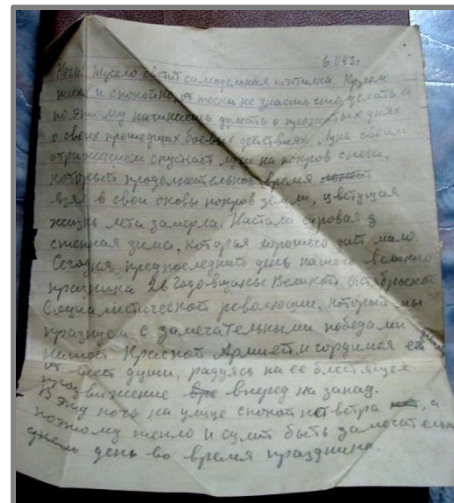 6.11.43г.
Ночь. Тускло светит самодельная коптилка. Кругом
тихо и спокойно, от тоски не знаешь что делать, а
поэтому начинаешь думать о прожитых днях
о своих прошедших боевых действиях. Луна своим
отражением спускает лучи на покров снега,
который продолжительное время
взял в свои оковы покров земли, цветущая
жизнь лета замерла. Настала суровая
степная зима, которая хорошего даст мало
Сегодня, предпоследний день нашего великого
праздника 26 Годовщины Великой октябрьской
Социалистической революции, который мы
празднуем с замечательными победами
нашей Красной Армией и гордимся ею
от всей души, радуясь на её блестящее
продвижение вперед на запад.
В эту ночь на улице спокойно нет ветра, а
поэтому тепло и сулит быть замечательным
днем день во время праздника.